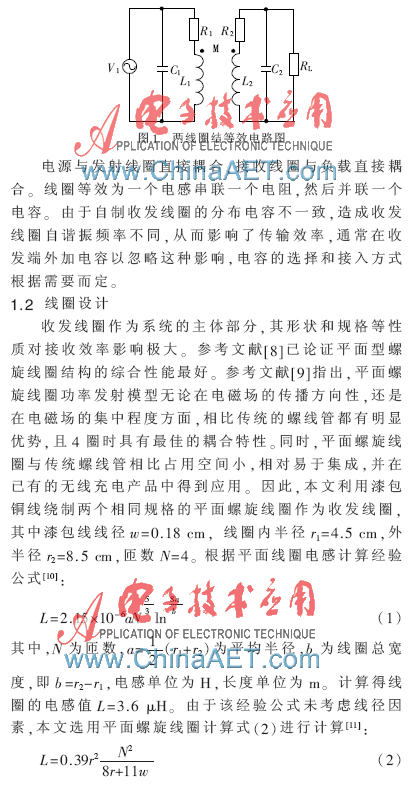 R1
R2
M
V1
C1
L1
L2
C2
RL
图1 两线圈结等效电路图
电子技术应用
APPLICATION OF ELECTRONIC TECHNIQUE
www.ChinaAET.com
电源与发射线圈直接耦合,接收线圈与负载直接耦
合。线圈等效为一个电感串联一个电阻,然后并联一个
电容。由于自制收发线圈的分布电容不一致,造成收发
线圈自谐振频率不同,从而影响了传输效率,通常在收
发端外加电容以忽略这种影响,电容的选择和接入方式
根据需要而定。
1.2 线圈设计
收发线圈作为系统的主体部分,其形状和规格等性
质对接收效率影响极大。参考文献[8]已论证平面型螺
旋线圈结构的综合性能最好。参考文献[9]指出,平面螺
旋线圈功率发射模型无论在电磁场的传播方向性,还是
在电磁场的集中程度方面,相比传统的螺线管都有明显
优势,且4圈时具有最佳的耦合特性。同时,平面螺旋线
圈与传统螺线管相比占用空间小,相对易于集成,并在
已有的无线充电产品中得到应用。因此,本文利用漆包
铜线绕制两个相同规格的平面螺旋线圈作为收发线圈,
其中漆包线线径w=0.18 cm, 线圈内半径r1=4.5 cm,外
半径r2=8.5 cm,匝数N=4。根据平面线圈电感计算经验
公式[10]:
L=2.15×10⁻⁶aN^(5/3) ln (1)
电子技术应用
APPLICATION OF ELECTRONIC TECHNIQUE
其中,N为匝数,a=1/2(r1+r2)为平均半径,b为线圈总宽
www.ChinaAET.com
度,即b=r2-r1,电感单位为H,长度单位为m。计算得线
圈的电感值L=3.6 μH。由于该经验公式未考虑线径因
素,本文选用平面螺旋线圈计算式(2)进行计算[11]:
L=0.39r² N²/(8r+11w) (2)